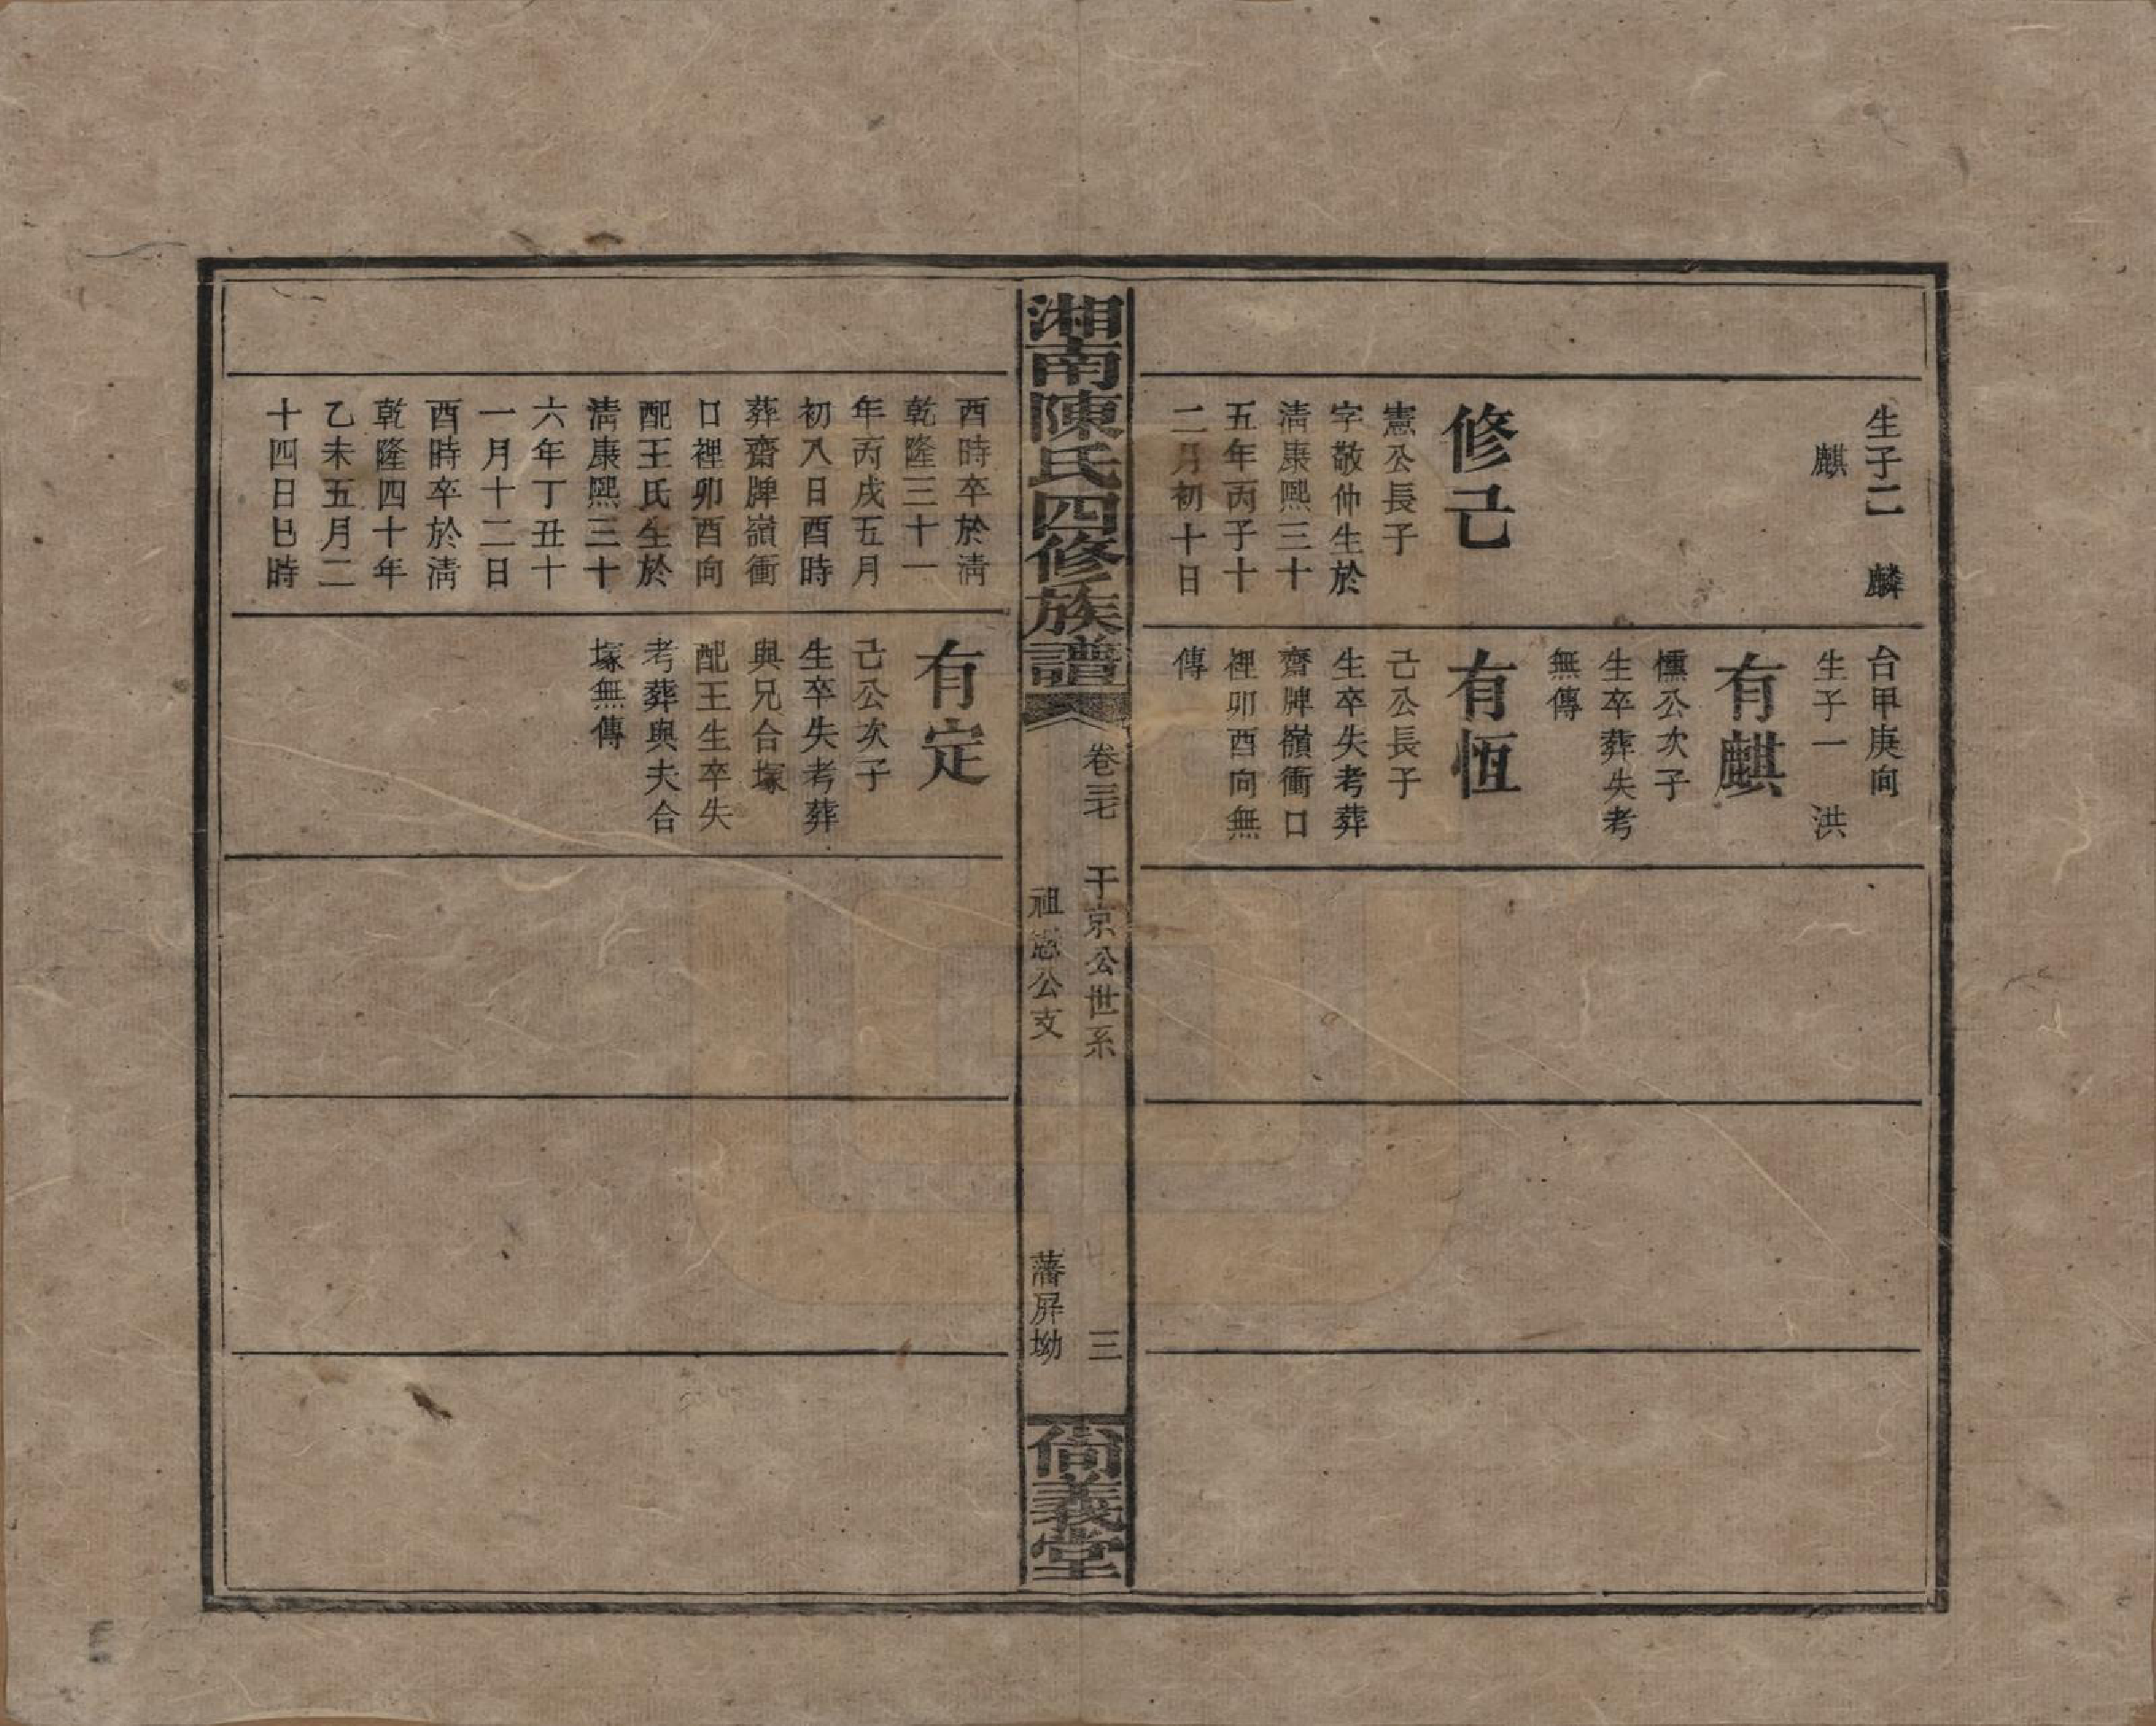 生子二　麟
麒
修己
憲公長子
字敬仲生於
清康熙三十
五年丙子十
二月初十日
台甲庚向
生子一　洪
有麒
公次子
生卒葬失考
無傳
有恆
己公長子
生卒失考葬
齋牌嶺衝口
裡卯酉向無
傳
湘南陳氏四修族譜
卷三七　干京公世系　三
祖憲公支　藩屏坳
尙義堂
酉時卒於清
乾隆三十一
年丙戌五月
初八日酉時
葬齋牌嶺衝
口裡卯酉向
配王氏生於
清康熙三十
六年丁丑十
一月十二日
酉時卒於清
乾隆四十年
乙未五月二
十四日巳時
有定
己公次子
生卒失考葬
與兄合塚
配王生卒失
考葬與夫合
塚無傳